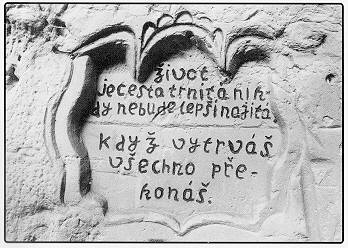 život
je cesta trnitá nik-
dy nebude lepší nažitá
když vytrváš
všechno pře-
konáš.